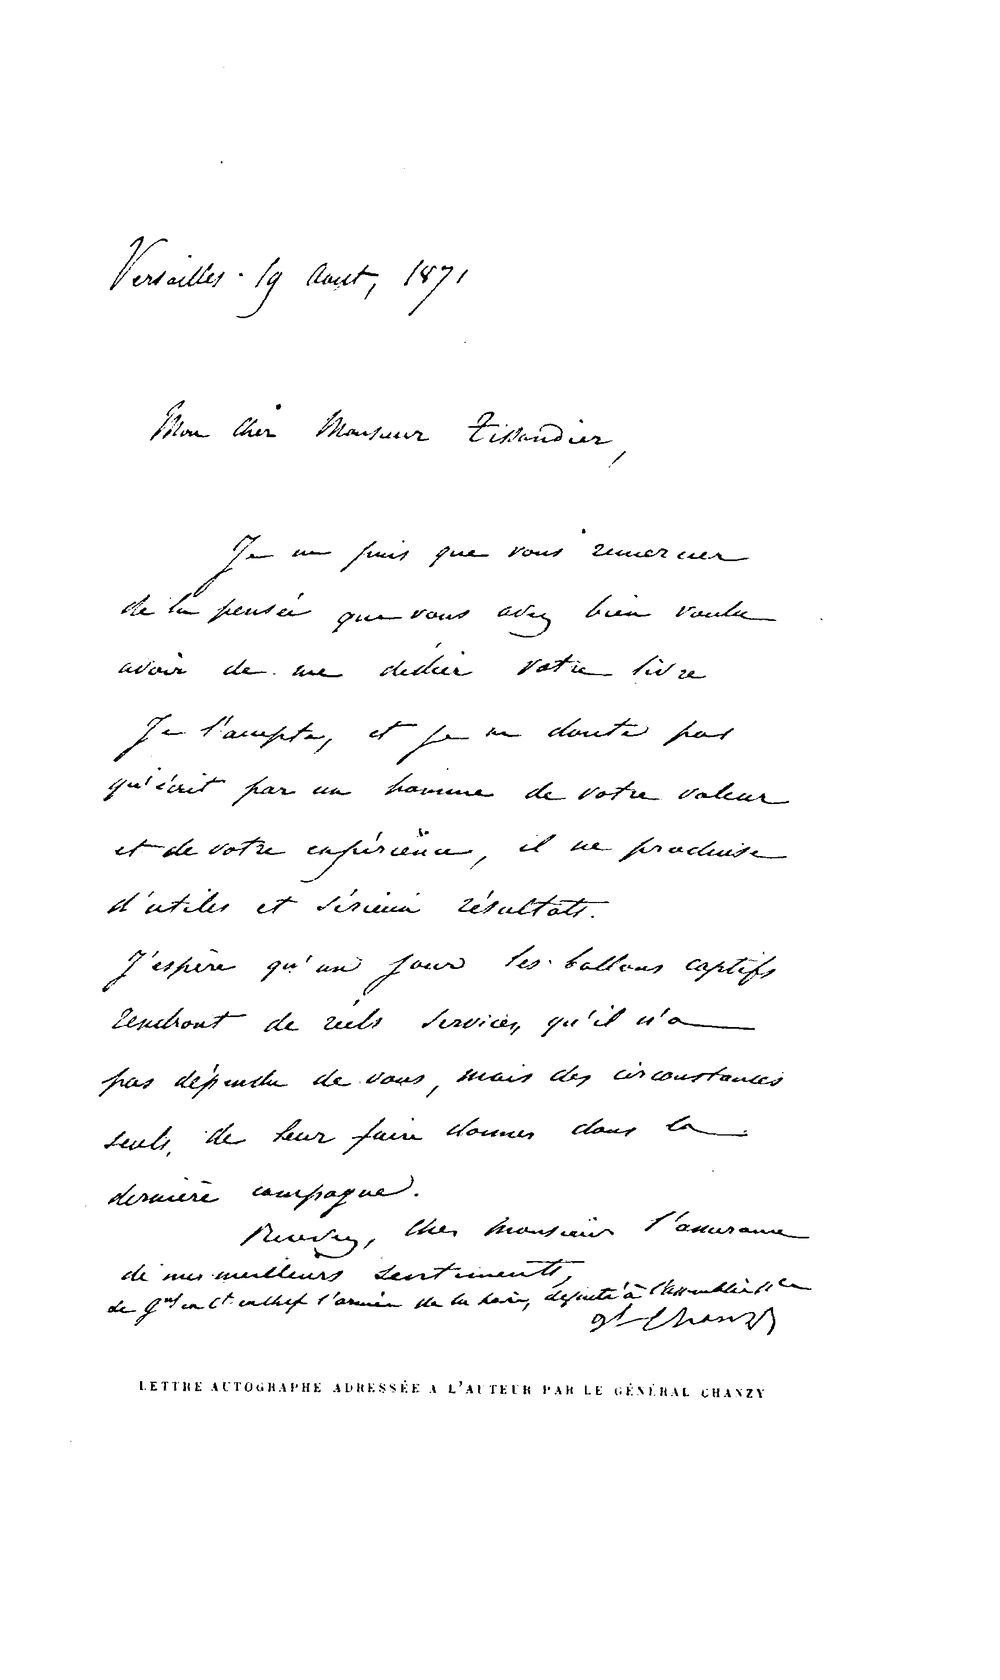 Versailles . 19 Aout, 1871
Mon cher Monsieur Tissandier,
Je ne puis que vous remercier
de la pensée que vous avez bien voulu
avoir de me dédier votre livre
Je l'accepte, et je ne doute pas
qu'écrit par un homme de votre valeur
et de votre expérience, il ne produise
d'utiles et sérieux résultats.
J'espère qu'un jour les ballons captifs
rendront de réels services, qu'il n'a
pas dépendu de vous, mais des circonstances
seuls, de leur faire donner dans la
dernière campagne.
Recevez, cher monsieur l'assurance
de mes meilleurs sentiments,
Le Gal en Ct en chef l'armée de la Loire, député à l'assemblée Nle
Gl Chanzy
LETTRE AUTOGRAPHE ADRESSÉE A L'AUTEUR PAR LE GÉNÉRAL CHANZY